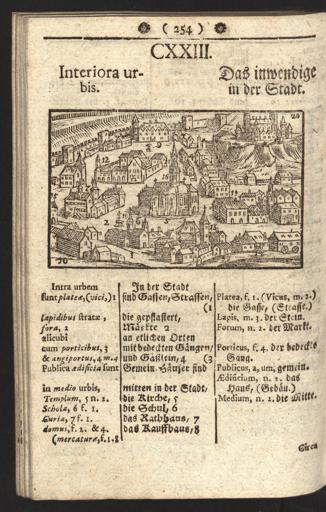 ( 254 )
CXXIII.
Interiora ur-
bis.
Das inwendige
in der Stadt.
Intra urbem
sunt plateæ, (vici,) 1
lapidibus stratæ,
fora, 2
alicubi
cum porticibus, 3
& angiportus, 4 m. 4
Publica ædificia sunt
in medio urbis,
Templum, 5 n. 2.
Schola, 6 f. 1.
Curia, 7 f. 1.
domus, f. 2. & 4.
(mercaturæ, f. 1. 8
In der Stadt
sind Gassen, Strassen,
(1
die gepflastert,
Märkte 2
an etlichen Orten
mit bedeckten Gängen/
und Gäßlein, 4 (3
Gemein-Häuser sind
mitten in der Stadt,
die Kirche, 5
die Schul, 6
das Rathhaus, 7
das Kauffhaus, 8
Platea, f. 1. (Vicus, m. 2.)
die Gasse, (Strasse.)
Lapis, m. 3. der Stein.
Forum, n. 2. der Markt.
Porticus, f. 4. der bedeckte
Gang.
Publicus, 2, um, gemein.
Ædificium, n. 2. das
Haus, (Gebäu.)
Medium, n. 2. die Mitte.